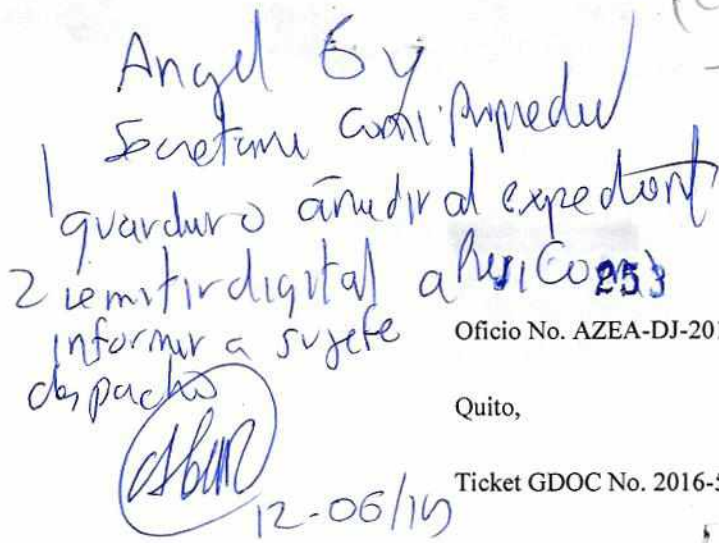 Angel
Secretaria Comi. Propiedad
1 guardar o añadir al expedient
2 remitir digital a
253
informar a su jefe
despacho
Oficio No. AZEA-DJ-201
Quito,
Ticket GDOC No. 2016-5
12-06/19